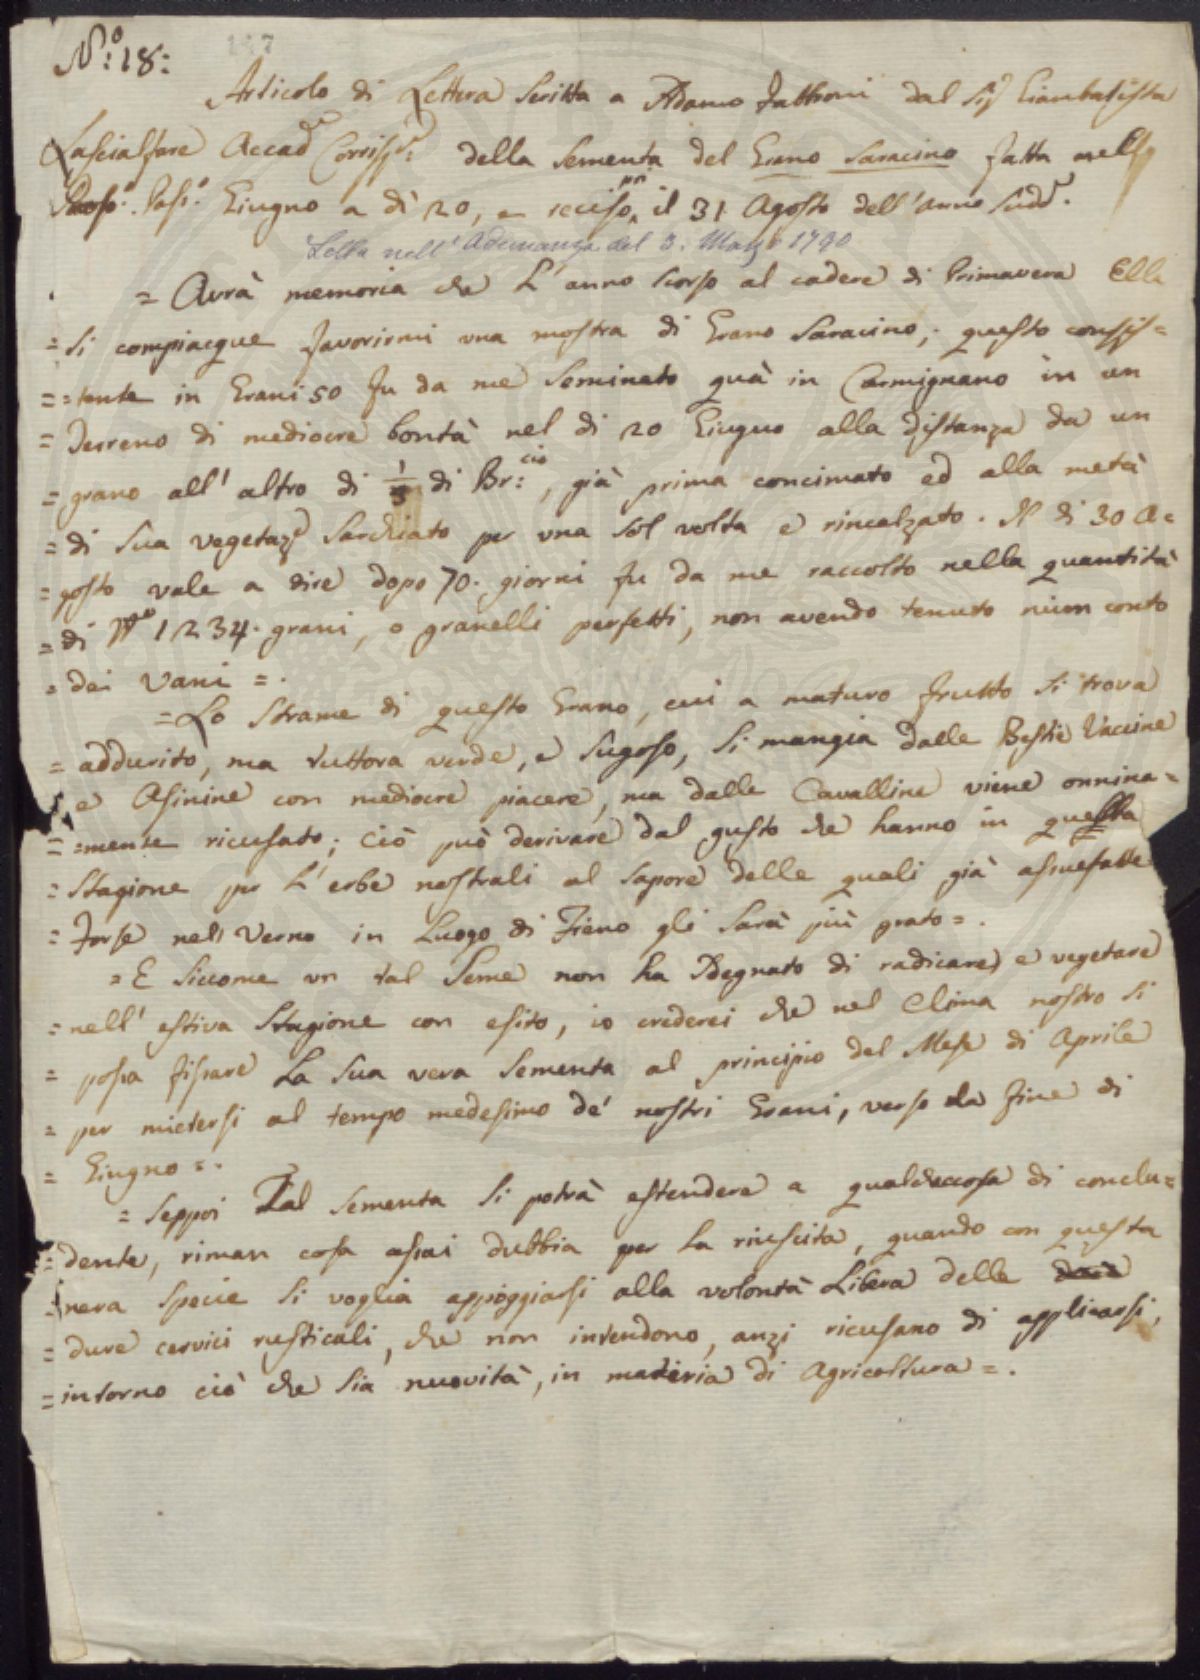 N.º 18:
Articolo di Lettera scritta a Adamo Fabbroni dal Sigr Gianbatista
Lascialfare Accad.e Corrisp.e della sementa del Grano Saracino fatta nello
pass.o Giugno a dì 20, e reciso il 31 Agosto dell'anno sudd.o.
Letta nell'Adunanza del 3. Marzo 1790
= Avrà memoria che L'anno scorso al cadere di Primavera Ella
= si compiacque favorirmi una mostra di Grano Saracino; questo consis=
= =tente in Grani 50 fu da me seminato quà in Carmignano in un
= Terreno di mediocre bontà nel di 20 Giugno alla distanza da un
= grano all'altro di 1/3 di Br:cio, già prima concimato ed alla metà
= di sua vegetaz.e sarchiato per una sol volta e rincalzato. Il di 30 A=
= gosto vale a dire dopo 70. giorni fu da me raccolto nella quantità
= di N.o 1234. grani, o granelli perfetti, non avendo tenuto niun conto
= dei vani =.
= Lo strame di questo Grano, cui a maturo frutto si trova
= addurito, ma tuttora verde, e sugoso, si mangia dalle Bestie Vaccine
e Asinine con mediocre piacere, ma dalle Cavalline viene onnina=
= =mente ricusato; ciò può derivare dal gusto che hanno in questa
= Stagione per L'erbe nostrali al sapore delle quali già assuefatte
= Forse nell Verno in Luogo di Fieno gli sarà più grato =.
= E siccome un tal seme non ha sdegnato di radicare, e vegetare
= nell'estiva stagione con esito, io crederei che nel Clima nostro si
= possa fissare La sua vera sementa al principio del Mese di Aprile
= per mietersi al tempo medesimo de' nostri Grani, verso la fine di
= Giugno =.
= Seppoi Tal sementa si potrà estendere a qualchecosa di conclu=
= dente, riman cosa assai dubbia per la riuscita, quando con questa
nera specie si voglia appoggiarsi alla volontà Libera delle
= dure cervici rusticali, che non intendono, anzi ricusano di applicarsi,
= intorno ciò che sia nuovità, in materia di Agricoltura =.